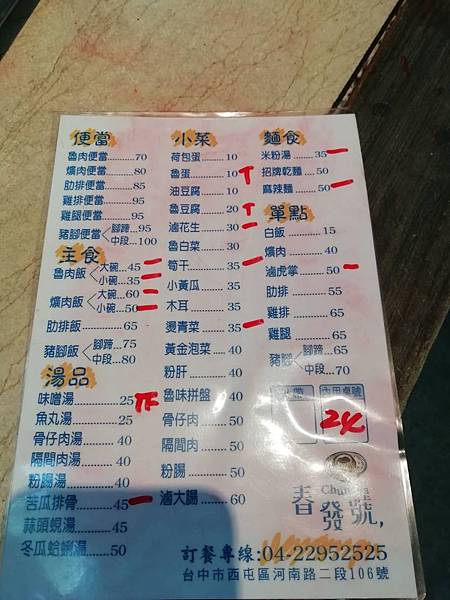 便當
魯肉便當..........70
爌肉便當..........80
肋排便當..........85
雞排便當..........95
雞腿便當..........95
豬腳便當 腳蹄...95
中段...100
主食
魯肉飯 大碗...45
小碗...35
爌肉飯 大碗...60
小碗...50
肋排飯............65
豬腳飯 腳蹄...75
中段...80
湯品
味噌湯............25 下
魚丸湯............25
骨仔肉湯..........40
隔間肉湯..........40
粉腸湯............40
苦瓜排骨..........45
蒜頭蜆湯..........50
冬瓜蛤蜊湯......50
小菜
荷包蛋............10
魯蛋...............10
油豆腐............10
魯豆腐............20
滷花生............30
魯白菜............30
筍干...............35
小黃瓜............35
木耳...............35
燙青菜............35
黃金泡菜..........40
粉肝...............40
魯味拼盤..........40
骨仔肉............50
隔間肉............50
粉腸...............50
滷大腸............60
麵食
米粉湯............35
招牌乾麵..........50
麻辣麵............50
單點
白飯...............15
爌肉...............40
滷虎掌............50
肋排...............55
雞排...............65
雞腿...............65
豬腳 腳蹄...65
中段...70
內用桌號
24
春發號,
訂餐專線:04-22952525
台中市西屯區河南路二段106號